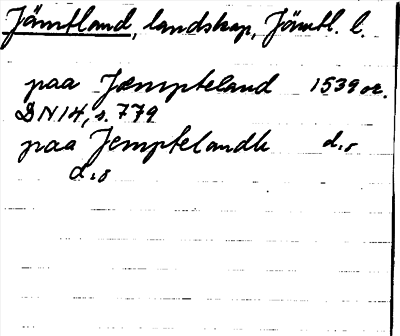 Jämtland, landskap, Jämtl. l.
paa Jæmpteland 1539 or.
DN14, s. 779
paa Jemptelandh d.o
d.o